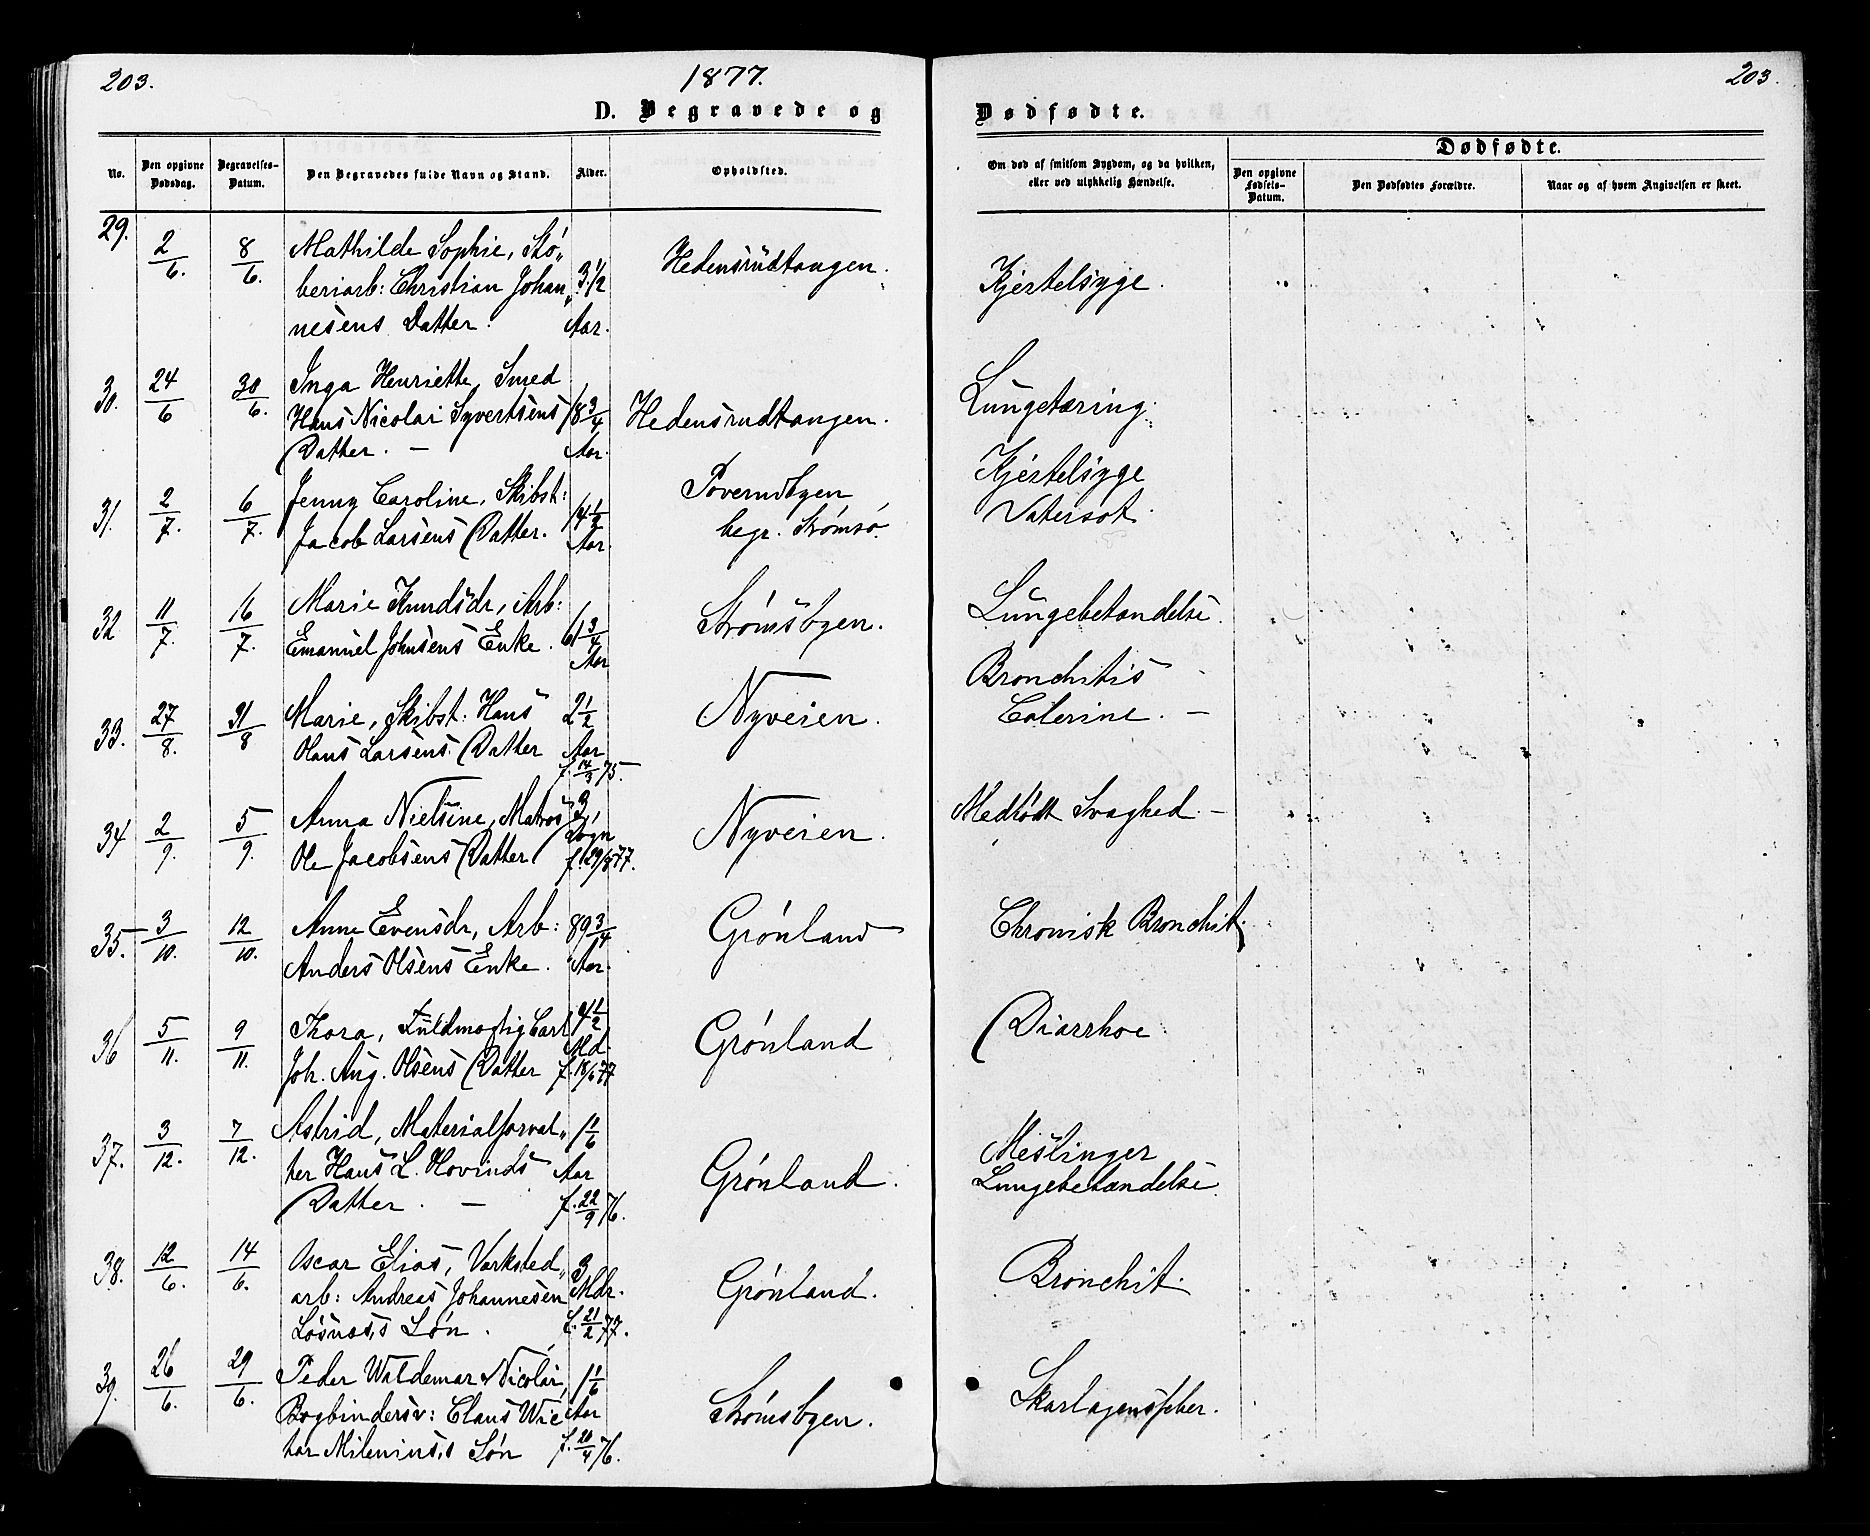 203.
1877.
203.
D. Begravede og
Dødfødte.
No.
Den opgivne Dødsdag.
Begravelses-Datum.
Den Begravedes fulde Navn og Stand.
Alder.
Opholdsted.
Om død af smitsom Sygdom, og da hvilken, eller ved ulykkelig Hændelse.
Dødfødte.
Den opgivne Fødsels-Datum.
Den Dødfødtes Forældre.
Naar og af hvem Angivelsen er skeet.
29. 2/6. 8/6. Mathilde Sophie, Stø„
beriarb: Christian Johan„ 3 1/2 Hedensrudtangen. Kjertelsyge.
nesens Datter. Aar.
30. 24/6 30/6. Inga Henriette, Smed
Hans Nicolai Syvertsens 18 3/4 Hedensrudtangen. Lungetæring.
Datter. — Aar.
31. 2/7. 6/7. Jenny Caroline, Skibst: 14 1/2 Kjertelsyge
Jacob Larsens Datter. Aar. begr. Strømsø. Vatersot.
32 11/7. 16/7. Marie Knudsdr, Arb:
Emanuel Johnsens Enke. 61 3/4 Aar Strømsbyen. Lungebetændelse.
33. 27/8. 31/8 Marie, Skibst: Hans 2 1/2 Nyveien. Bronchitis
Olaus Larsens Datter Aar f. 14/3 75. —
34 2/9. 5/9. Anna Nielsine, Matros 3 Døgn Nyveien. Medfødt Svaghed. —
Ole Jacobsens Datter f. 29/8 77.
35. 3/10. 12/10. Anne Evensdr, Arb: 89 3/4 Grønland Chronisk Bronchit.
Anders Olsens Enke. Aar.
36 5/11. 9/11. Thora, Fuldmægtig Carl 4 1/2 Md. Grønland Diarrhoe
Joh. Aug. Olsens Datter f. 18/6 77
37. 3/12. 7/12. Astrid, Materialforval„ 1 1/6 Meslinger
ter Hans L. Hovinds Aar Grønland. Lungebetændelse.
Datter. — f. 22/9 76.
38. 12/6. 14/6. Oscar Elias, Værksted„ 3
arb: Andreas Johannesen Mdr. Grønland. Bronchit.
Løsnæs's Søn. f. 21/2 77.
39. 26/6. 29/6. Peder Waldemar Nicolai, 1 1/6
Bogbindersv: Claus Wic Aar Strømsbyen. Skarlagensfeber.
tor Milenius's Søn f. 20/4 76.